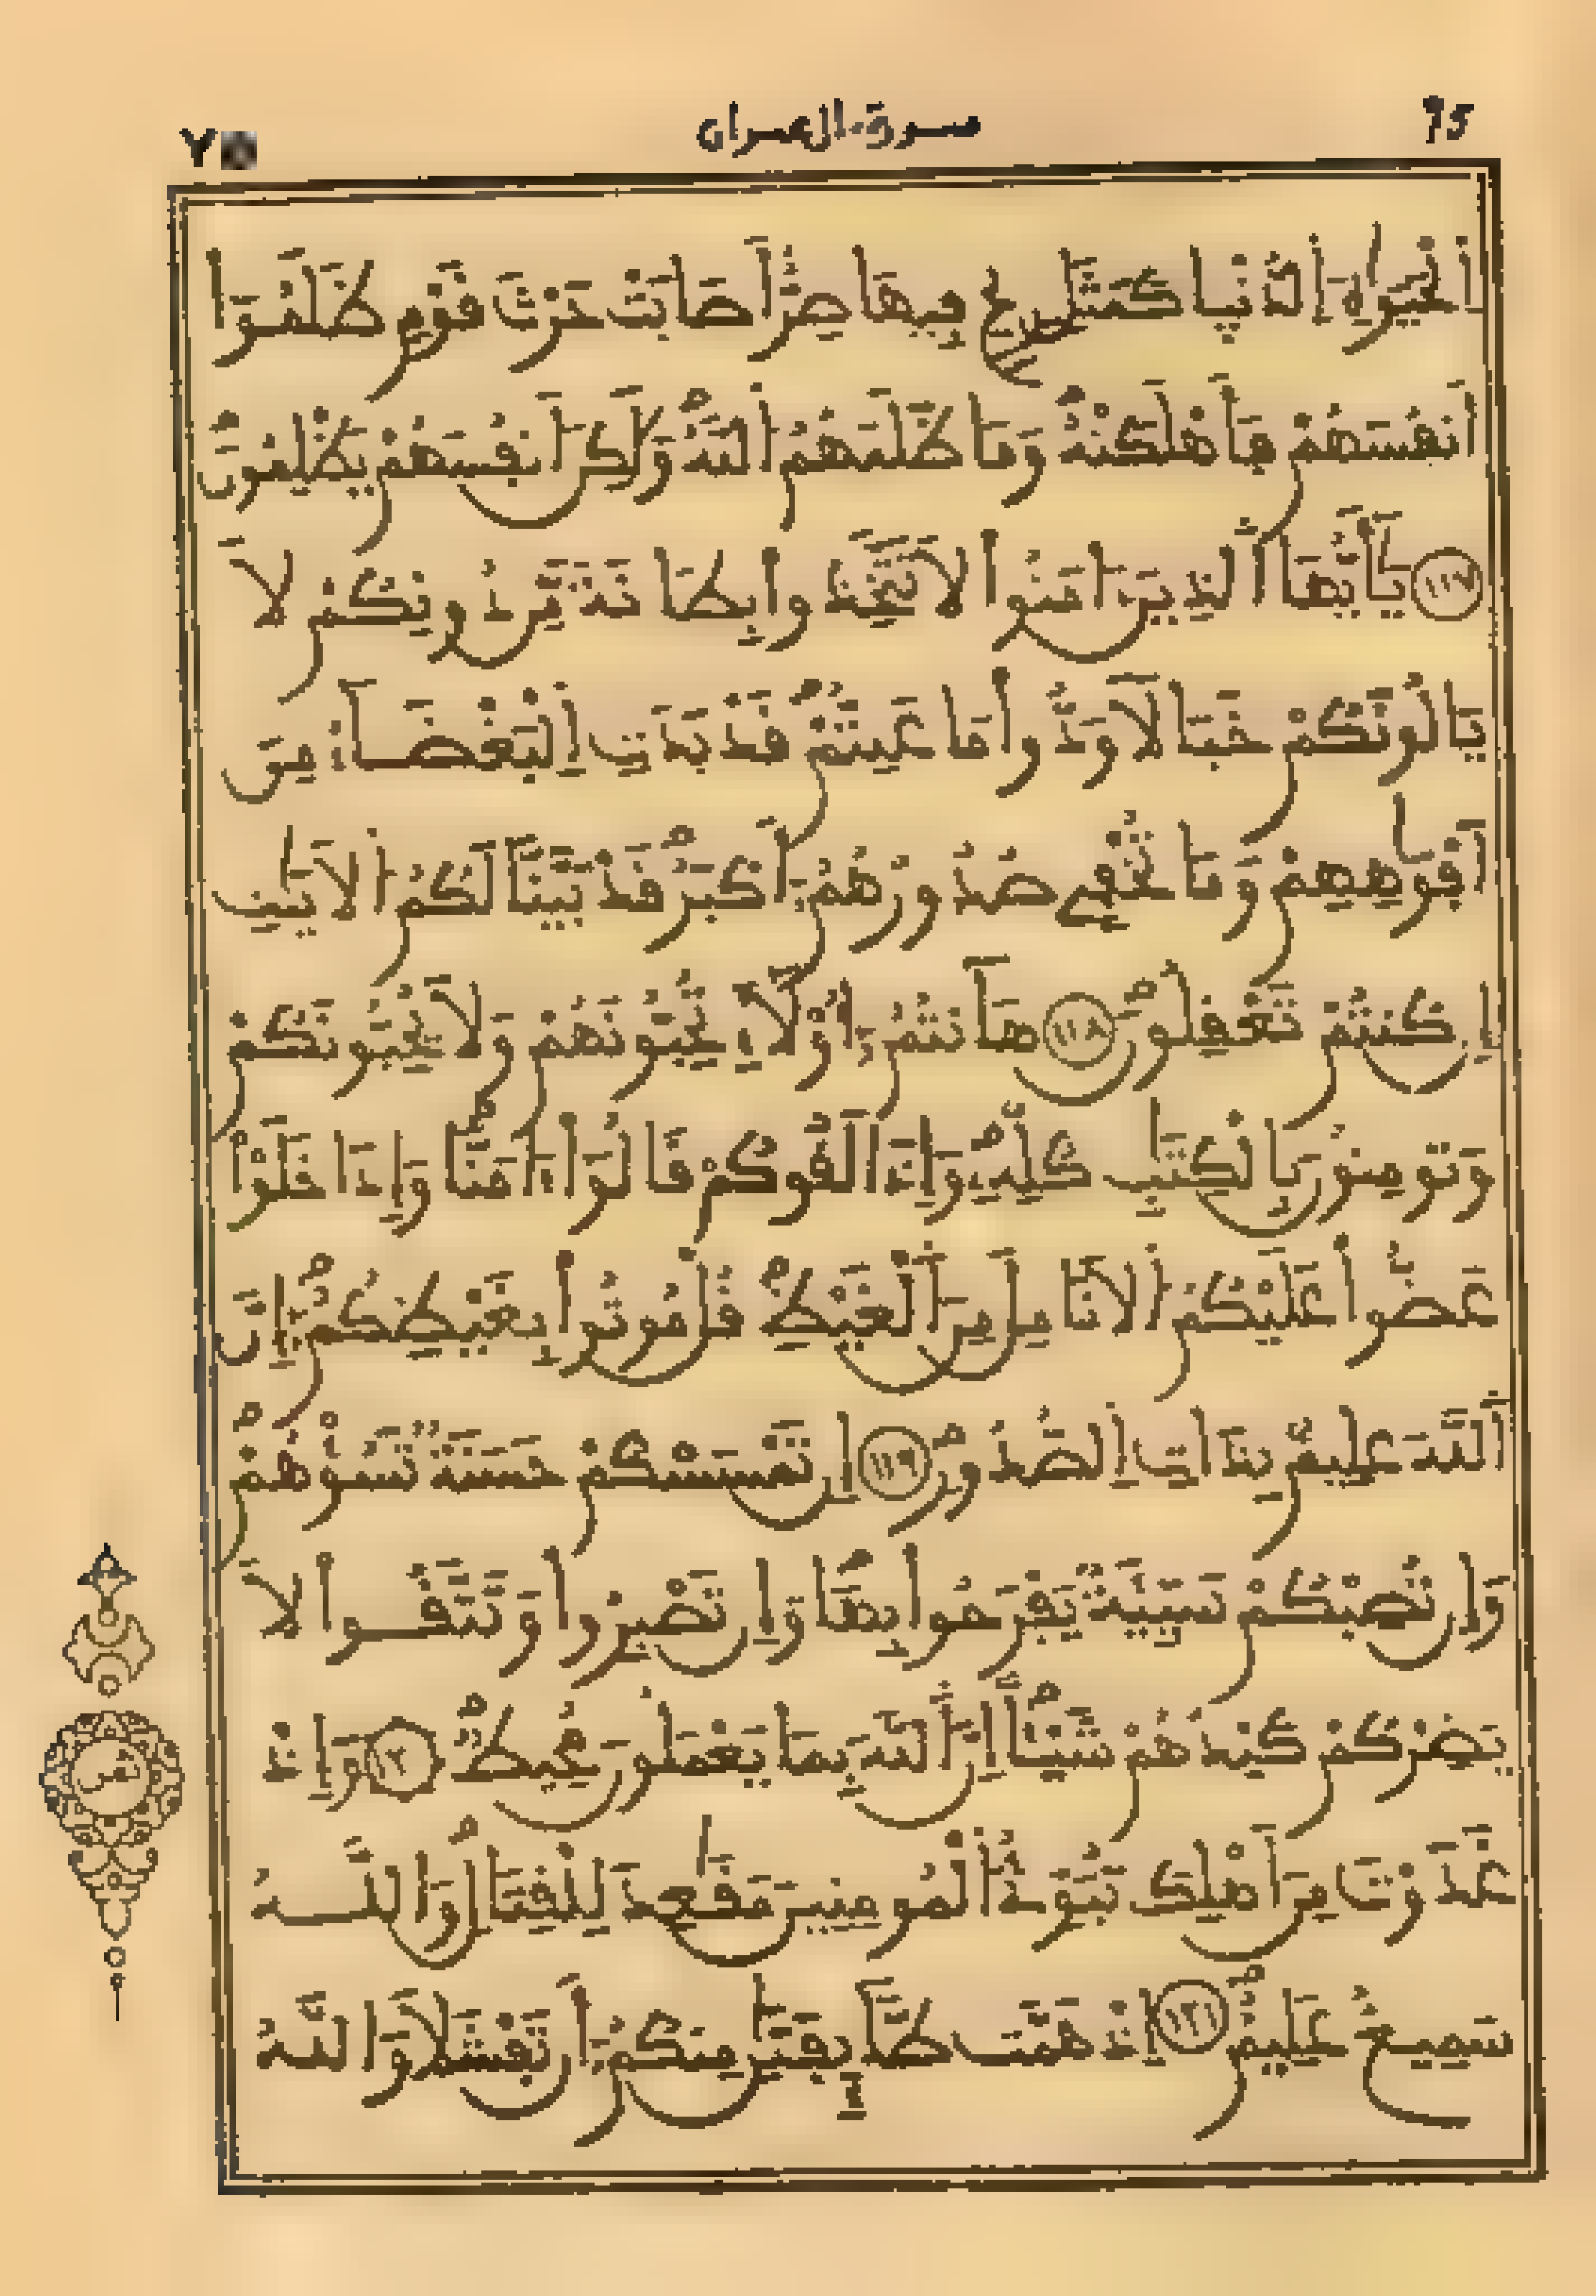 75 سورة ال عمران ٧
اِ۬لْحَيَوٰةِ اِ۬لدُّنْي۪ا كَمَثَلِ رِيحٖ فِيهَا صِرٌّ اَصَابَتْ حَرْثَ قَوْمٖ ظَلَمُوٓاْ
أَنفُسَهُمْ فَأَهْلَكَتْهُ وَمَا ظَلَمَهُمُ اُ۬للَّهُ وَلَٰكِنَ اَنفُسَهُمْ يَظْلِمُونَ
١١٧ يَٰٓأَيُّهَا اَ۬لذِينَ ءَامَنُواْ لَا تَتَّخِذُواْ بِطَانَةٗ مِّن دُونِكُمْ لَا
يَالُونَكُمْ خَبَالاٗ وَدُّواْ مَا عَنِتُّمْ قَدْ بَدَتِ اِ۬لْبَغْضَآءُ مِنَ
اَفْوَٰهِهِمْ وَمَا تُخْفِے صُدُورُهُمُۥٓ أَكْبَرُ قَدْ بَيَّنَّا لَكُمُ اُ۬لَايَٰتِ
إِن كُنتُمْ تَعْقِلُونَ ١١٨ هَآنتُمُۥٓ أُوْلَآءِ تُحِبُّونَهُمْ وَلَا يُحِبُّونَكُمْ
وَتُومِنُونَ بِالْكِتَٰبِ كُلِّهِۦ وَإِذَا لَقُوكُمْ قَالُوٓاْ ءَامَنَّا وَإِذَا خَلَوْاْ
عَضُّواْ عَلَيْكُمُ اُ۬لَانَامِلَ مِنَ اَ۬لْغَيْظِ قُلْ مُوتُواْ بِغَيْظِكُمُۥٓ إِنَّ
اَ۬للَّهَ عَلِيمُۢ بِذَاتِ اِ۬لصُّدُورِ ١١٩ إِن تَمْسَسْكُمْ حَسَنَةٞ تَسُؤْهُمْ
وَإِن تُصِبْكُمْ سَيِّئَةٞ يَفْرَحُواْ بِهَا وَإِن تَصْبِرُواْ وَتَتَّقُواْ لَا
يَضِرْكُمْ كَيْدُهُمْ شَيْـٔاً اِنَّ اَ۬للَّهَ بِمَا يَعْمَلُونَ مُحِيطٞ ١٢٠ وَإِذْ
غَدَوْتَ مِنَ اَهْلِكَ تُبَوِّئُ اُ۬لْمُومِنِينَ مَقَٰعِدَ لِلْقِتَالِ وَاللَّهُ
سَمِيعٌ عَلِيمٌ ١٢١ إِذْ هَمَّت طَّآئِفَتَٰنِ مِنكُمُۥٓ أَن تَفْشَلَا وَاللَّهُ